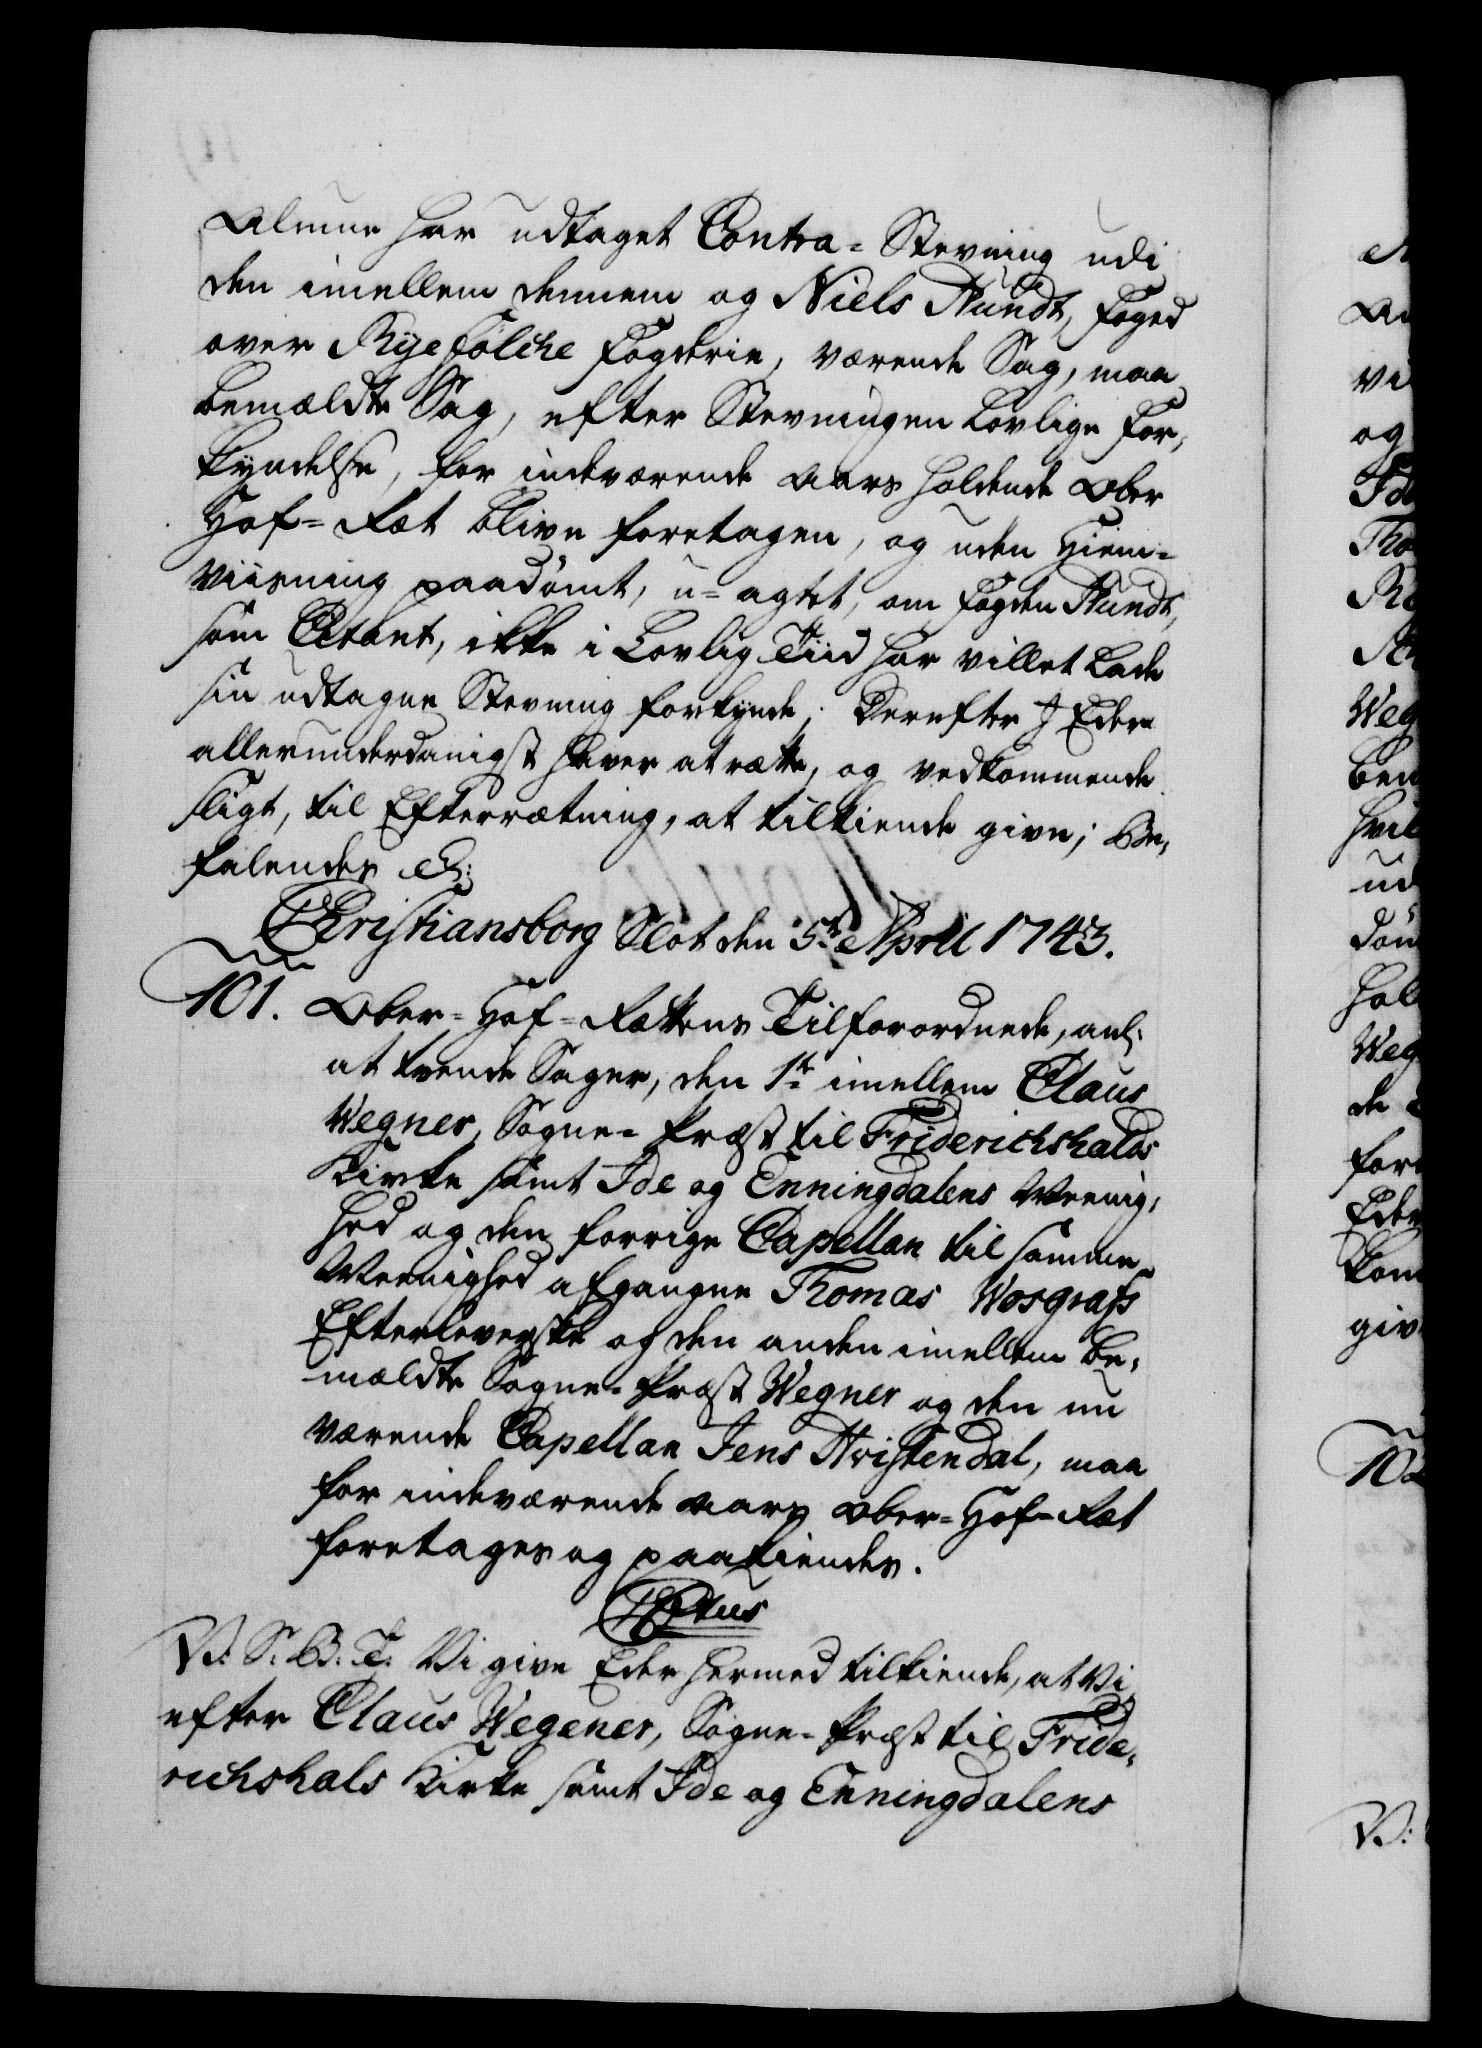 Alnine har udtaget Contra-Stevning udi
den imellem dennem og Niels Hundt, Foged
over Ryefölche Fogderie, værende Sag, maa
bemældte Sag, efter Stevningen Lovlige For,
kyndelse, for indeværende Aars holdende Ober
Hof-Ræt blive foretagen, og uden Hiem-
viisning paadömt, u-agtet, om Fogden Hundt,
som Citant, ikke i Lovlig Tiid har villet lade
sin udtagne Stevning forkynde; Derefter I Eder
allerunderdanigst haver at rætte, og vedkommende
sligt, til Efterrætning, at tilkiende give; Be,
falendes etc:
Christiansborg Slot den 5te April 1743.
101. Ober-Hof-Rættens Tilforordnede, anl:
at tvende Sager, den 1te imellem Claus
Wegner, Sogne-Præst til Friderichshalds
Kirke samt Ide og Enningdalens Meenig,
hed og den forrige Capellan til samme
Meenighed afgangne Thomas Wosgrafs
Efterleverske og den anden imellem be,
mældte Sogne-Præst Wegner og den nu
værende Capellan Jens Hvistendal, maa
for indeværende Aars Ober-Hof-Ræt
foretages og paakiendes.
CPtus
V: S: B: T: Vi give Eder hermed tilkiende, at Vi
efter Claus Wegener, Sogne-Præst til Fride,
richshals Kirke samt Ide og Enningdalens